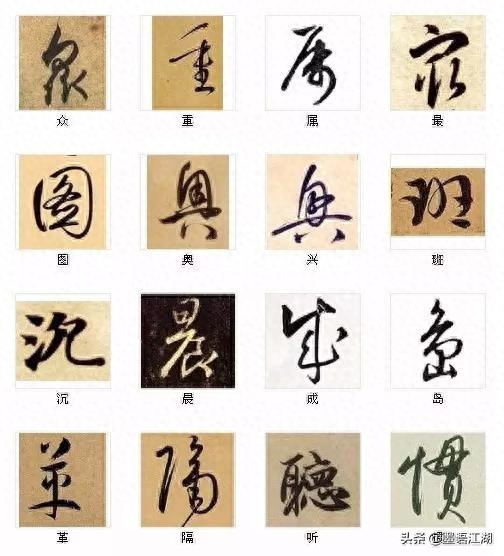 众 重 属 最
图 奥 兴 班
沉 晨 成 岛
革 隔 听 惯
头条 @墨语江湖